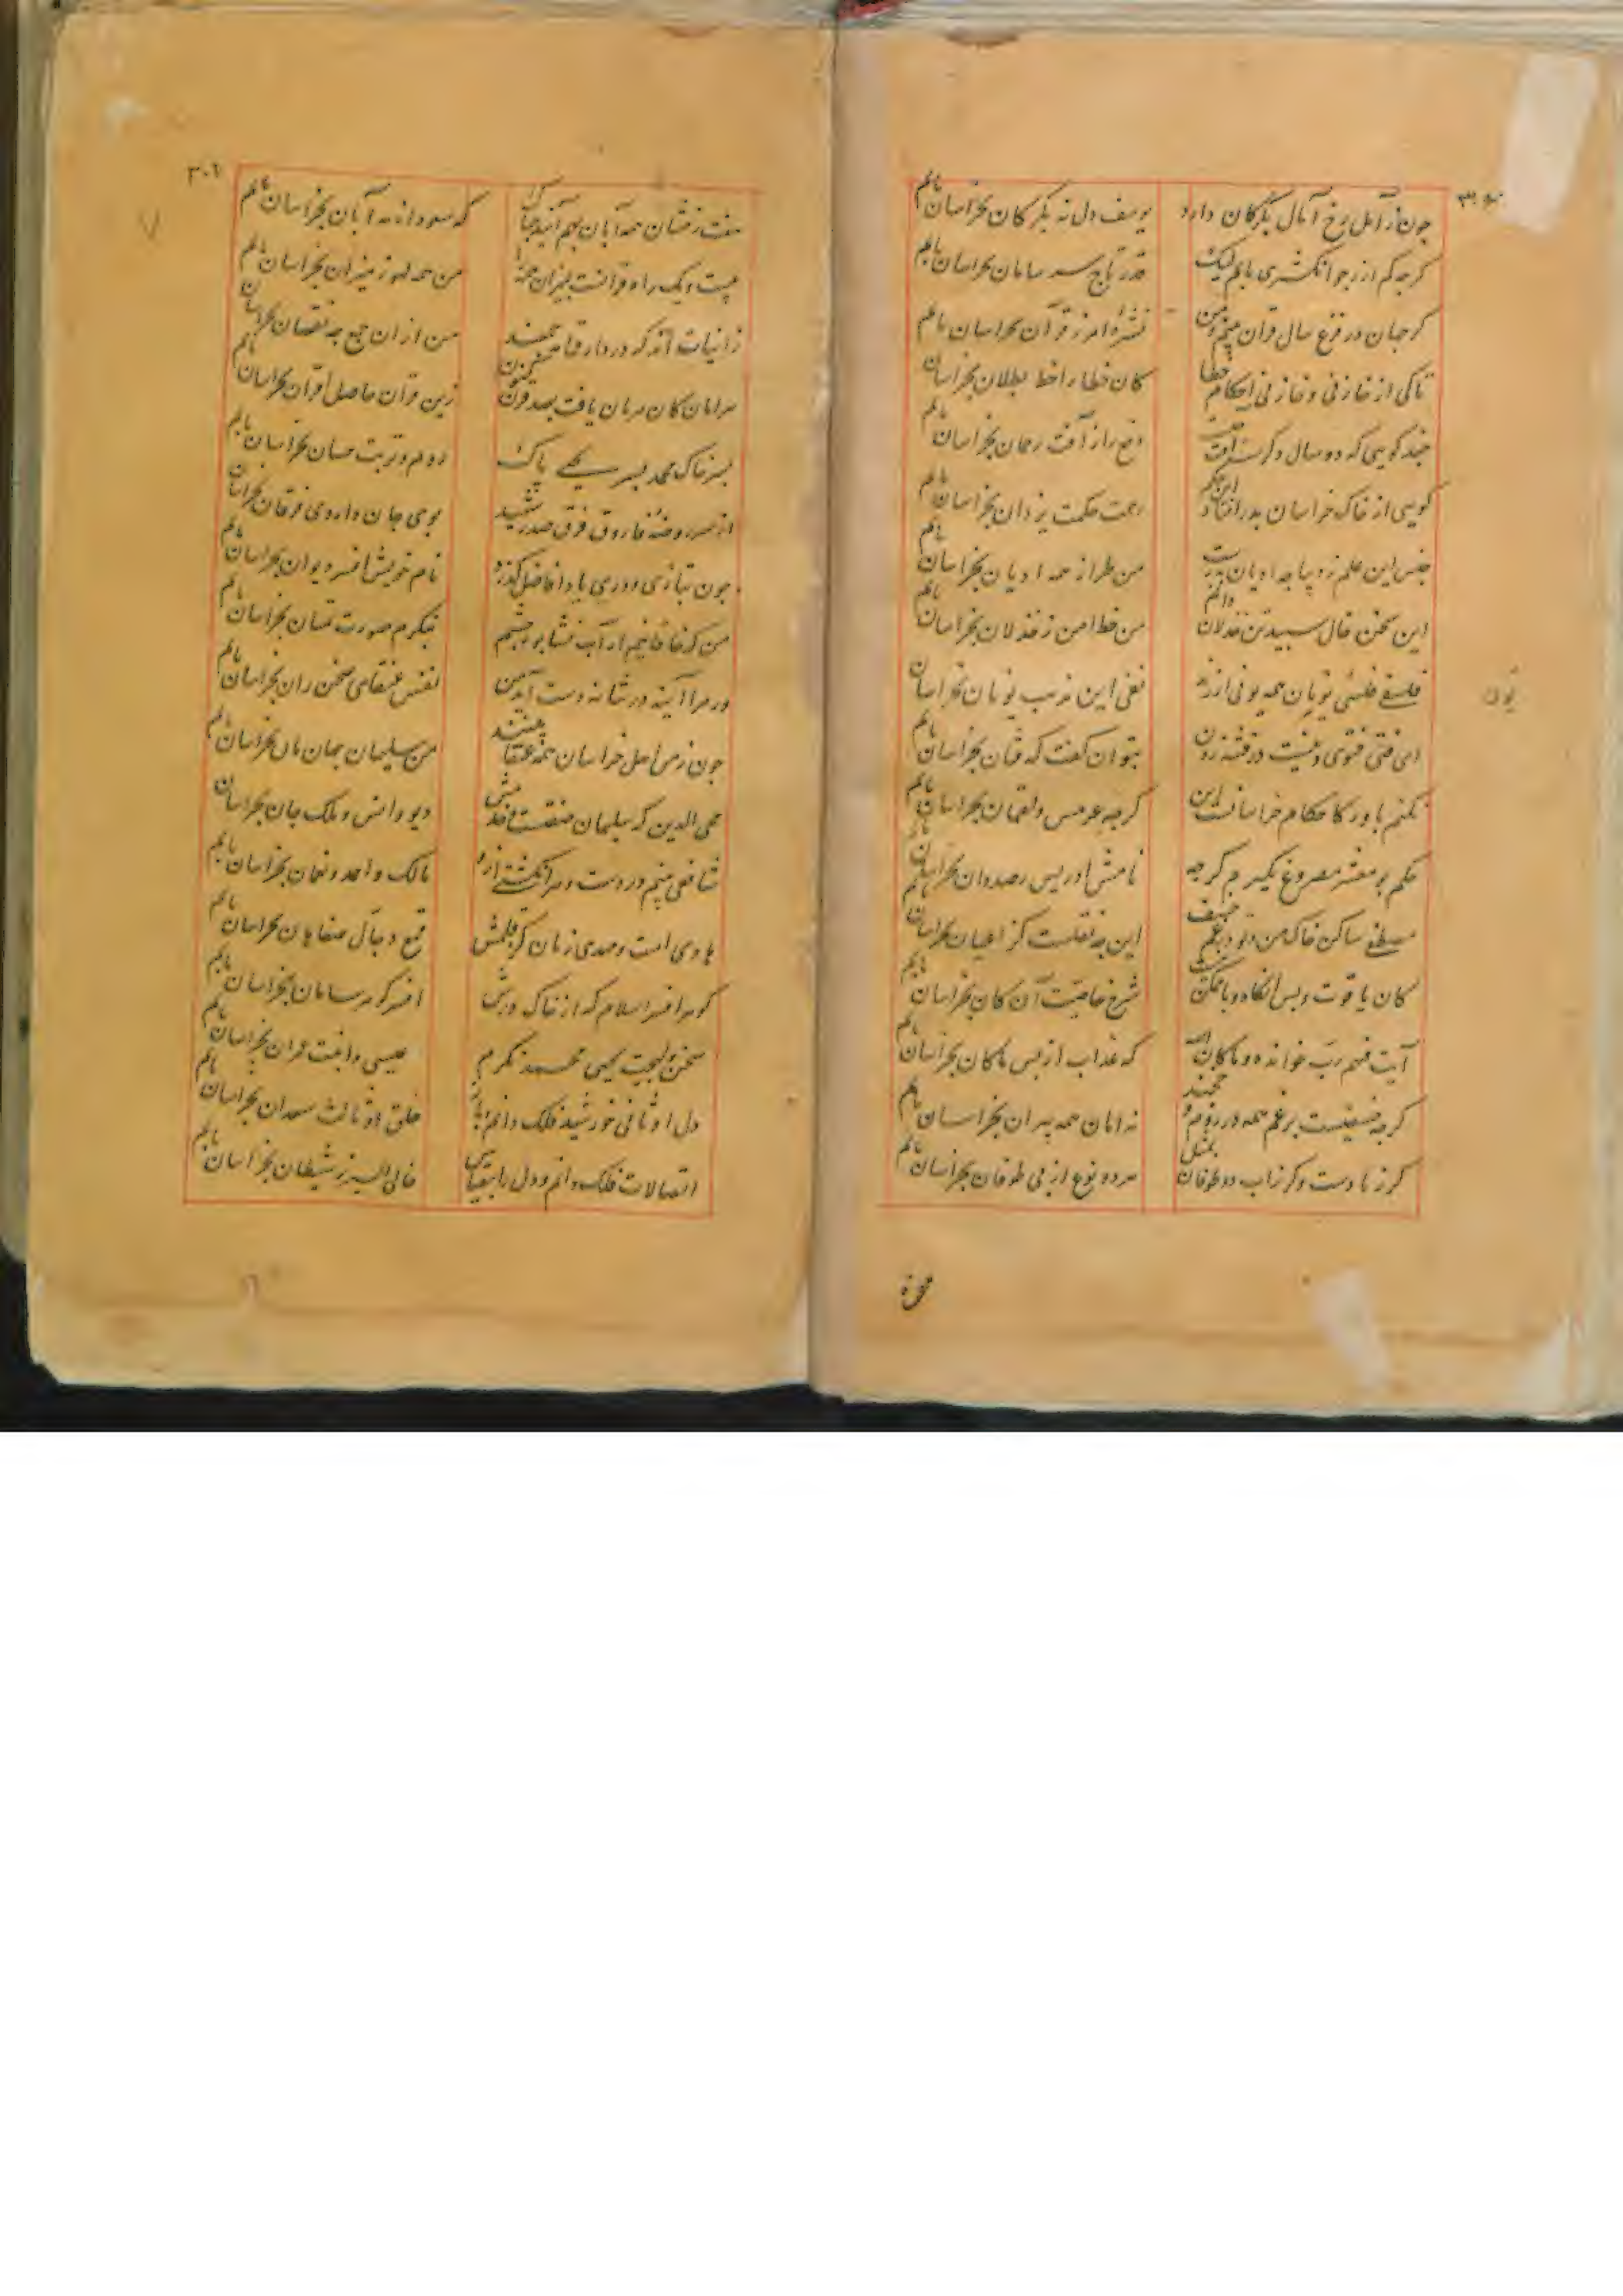 چون ز آمل رخ آمال بگرگان دارم
یوسف دل نه بگرگان بخراسان یابم
گرچه کم ارز چو انگشتری یابم لیک
قدر تاج سر سامان بخراسان یابم
گر جهان در فزع سال قران بینم من
نشرهٔ امن ز قرآن بخراسان یابم
تا کی از غازنی و غازنی احکام خطا
کان خطا را خط بطلان بخراسان یابم
چند گویی که دو سال دگر است آفت خسف
دفع را ز آفت رحمان بخراسان یابم
گویی از خاک خراسان بدر افتاد این حکم
رحمت حکمت یزدان بخراسان یابم
جنس این علم ز دیباچه ادیان بدرست
من طراز همه ادیان بخراسان یابم
این سخن خال سپیدتن خذلان دانم
من خط امن ز خذلان بخراسان یابم
فلسفی فلسی و یونان همه یونی ارزد
نفی این مذهب یونان بخراسان یابم
بتوان گفت که فتان بخراسان یابم
نکنم باور کاحکام خراسان است این
گرچه هرمس و لقمان بخراسان یابم
حکم بومعشر مصروع نگیرم گرچه
نامش ادریس رصددان بخراسان یابم
مصطفی ساکن خاک من و تو در غم خسف
این چه نقلست کز اعیان بخراسان یابم
کان یاقوت و پس آنگاه وبا ممکن نیست
شرح خاصیت آن کان بخراسان یابم
آیت فیهم رب خوانده و ماکان الله
که عذاب از پس ماکان بخراسان یابم
گرچه ضعیفست برغم همه در روم و خجند
نه امان همه پیران بخراسان یابم
گر ز بادست و گر ز آب دو طوفان بمثل
هر دو نوع از پی طوفان بخراسان یابم
که سعود از مه آبان بخراسان یابم
بیست و یک راه قرانست بمیزان همه را
من همه لهو ز میزان بخراسان یابم
من از آن جمع چه نقصان بخراسان یابم
مهرامان کان مهربان یافت بصد و قرون
زین قران حاصل اقران بخراسان یابم
بسر خاک محمد پسر یحیی پاک
روم و تربت حسان بخراسان یابم
از سر روضهٔ فاروق فرق صدر شهید
بوی جان داروی فرقان بخراسان یابم
چون بتازی و دری یاد افاضل گذرد
نام خویش افسر دیوان بخراسان یابم
من که خاقانیم ار آب نشابور چشم
بنگرم صورت سحبان بخراسان یابم
ور مرا آینه در شانه دست آید من
نفس عنقای سخن ران بخراسان یابم
چون ز من اهل خراسان همه عنقا بینند
من سلیمان جهانبان بخراسان یابم
محی الدین که سلیمان صفتست و خدمش
دیو و انس و ملک و جان بخراسان یابم
شافعی بینم در دست و هر انگشت از او
مالک و احمد و نعمان بخراسان یابم
هادی امت و مهدی زمان کز قلمش
قمع دجال صفاهان بخراسان یابم
گوهر افسر اسلام که از خاک درش
افسر گوهر سامان بخراسان یابم
سخن و بهجت یحیی محمد نگرم
عیسی و آفت عمران بخراسان یابم
دل او ثانی خورشید فلک دانم
خلق او ثالث سعدان بخراسان یابم
اتصالات فلک دانم و دل را بقیاس
خالی السیر ز شیطان بخراسان یابم